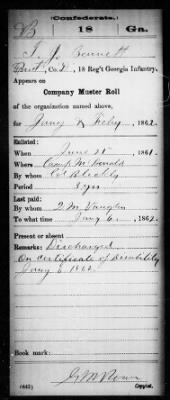 (Confederate.)
B 18 Ga.
T. J. Bennett
Pvt, Co. K, 18 Reg't Georgia Infantry.
Appears on
Company Muster Roll
of the organization named above,
for Jany & Feby, 1862.
Enlisted:
When June 25, 1861.
Where Camp McDonald
By whom Col
Period 3 yrs
Last paid:
By whom
To what time Jany 6, 1862.
Present or absent
Remarks: Discharged
On certificate of disability
Jany 6 1862.
Book mark:
(642)
Copyist.